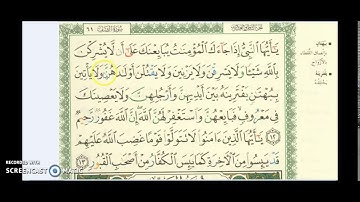 سورة الصف ٦١
يَٰٓأَيُّهَا ٱلنَّبِىُّ إِذَا جَآءَكَ ٱلْمُؤْمِنَٰتُ يُبَايِعْنَكَ عَلَىٰٓ أَن لَّا يُشْرِكْنَ
بِٱللَّهِ شَيْـًٔا وَلَا يَسْرِقْنَ وَلَا يَزْنِينَ وَلَا يَقْتُلْنَ أَوْلَٰدَهُنَّ وَلَا يَأْتِينَ
بِبُهْتَٰنٍ يَفْتَرِينَهُۥ بَيْنَ أَيْدِيهِنَّ وَأَرْجُلِهِنَّ وَلَا يَعْصِينَكَ
فِى مَعْرُوفٍ فَبَايِعْهُنَّ وَٱسْتَغْفِرْ لَهُنَّ ٱللَّهَ إِنَّ ٱللَّهَ غَفُورٌ رَّحِيمٌ
١٢ يَٰٓأَيُّهَا ٱلَّذِينَ ءَامَنُوا۟ لَا تَتَوَلَّوْا۟ قَوْمًا غَضِبَ ٱللَّهُ عَلَيْهِمْ
قَدْ يَئِسُوا۟ مِنَ ٱلْـَٔاخِرَةِ كَمَا يَئِسَ ٱلْكُفَّارُ مِنْ أَصْحَٰبِ ٱلْقُبُورِ ١٣
RECORDED WITH
SCREENCAST MATIC